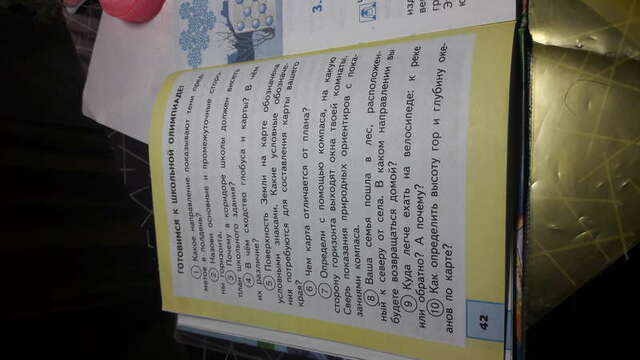 ГОТОВИМСЯ К ШКОЛЬНОЙ ОЛИМПИАДЕ!
1 Какое направление показывают тени пред-
метов в полдень?
2 Назови основные и промежуточные сторо-
ны горизонта.
3 Почему в коридоре школы должен висеть
план школьного здания?
4 В чём сходство глобуса и карты? В чём
их различие?
5 Поверхность Земли на карте обозначена
условными знаками. Какие условные обозначе-
ния потребуются для составления карты вашего
края?
6 Чем карта отличается от плана?
7 Определи с помощью компаса, на какую
сторону горизонта выходят окна твоей комнаты.
Сверь показания природных ориентиров с пока-
заниями компаса.
8 Ваша семья пошла в лес, расположен-
ный к северу от села. В каком направлении вы
будете возвращаться домой?
9 Куда легче ехать на велосипеде: к реке
или обратно? А почему?
10 Как определить высоту гор и глубину оке-
анов по карте?
42
3.
изд
вен
гр
Э
ю